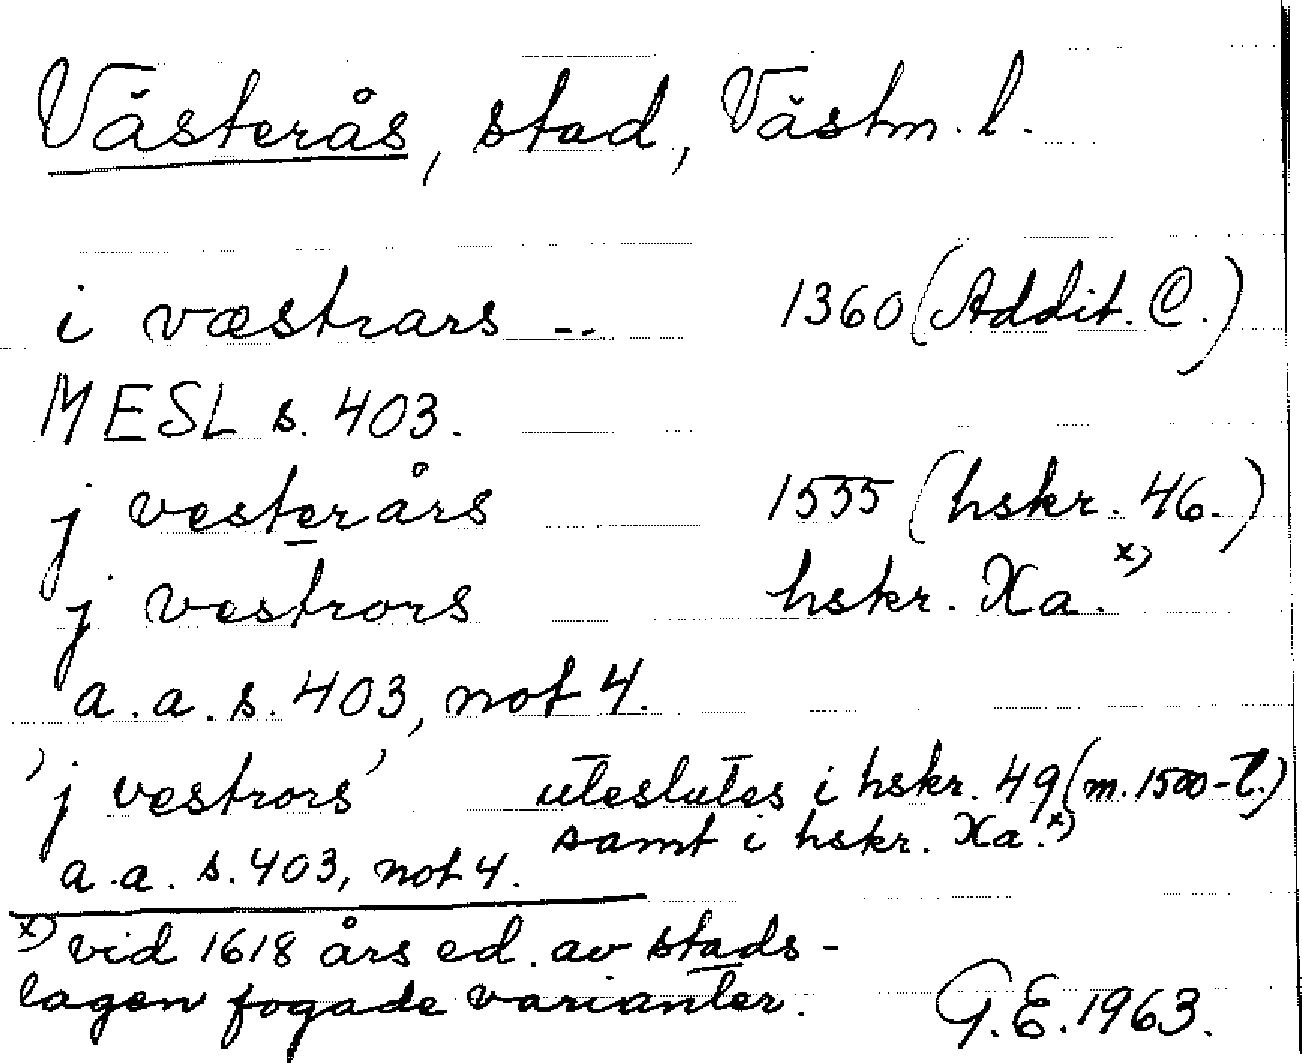 Västerås, stad, Västm. l.
i væstrars -- 1360 (Addit. C.)
MESL s. 403.
j vesterårs 1555 (hskr. 46.)
j vestrors hskr. Xa. x)
a. a. s. 403, not 4.
'j vestrors' uteslutes i hskr. 49 (m. 1500-t.)
samt i hskr. Xa. x)
a. a. s. 403, not 4.
x) vid 1618 års ed. av stads-
lagen fogade varianter.
G.E. 1963.